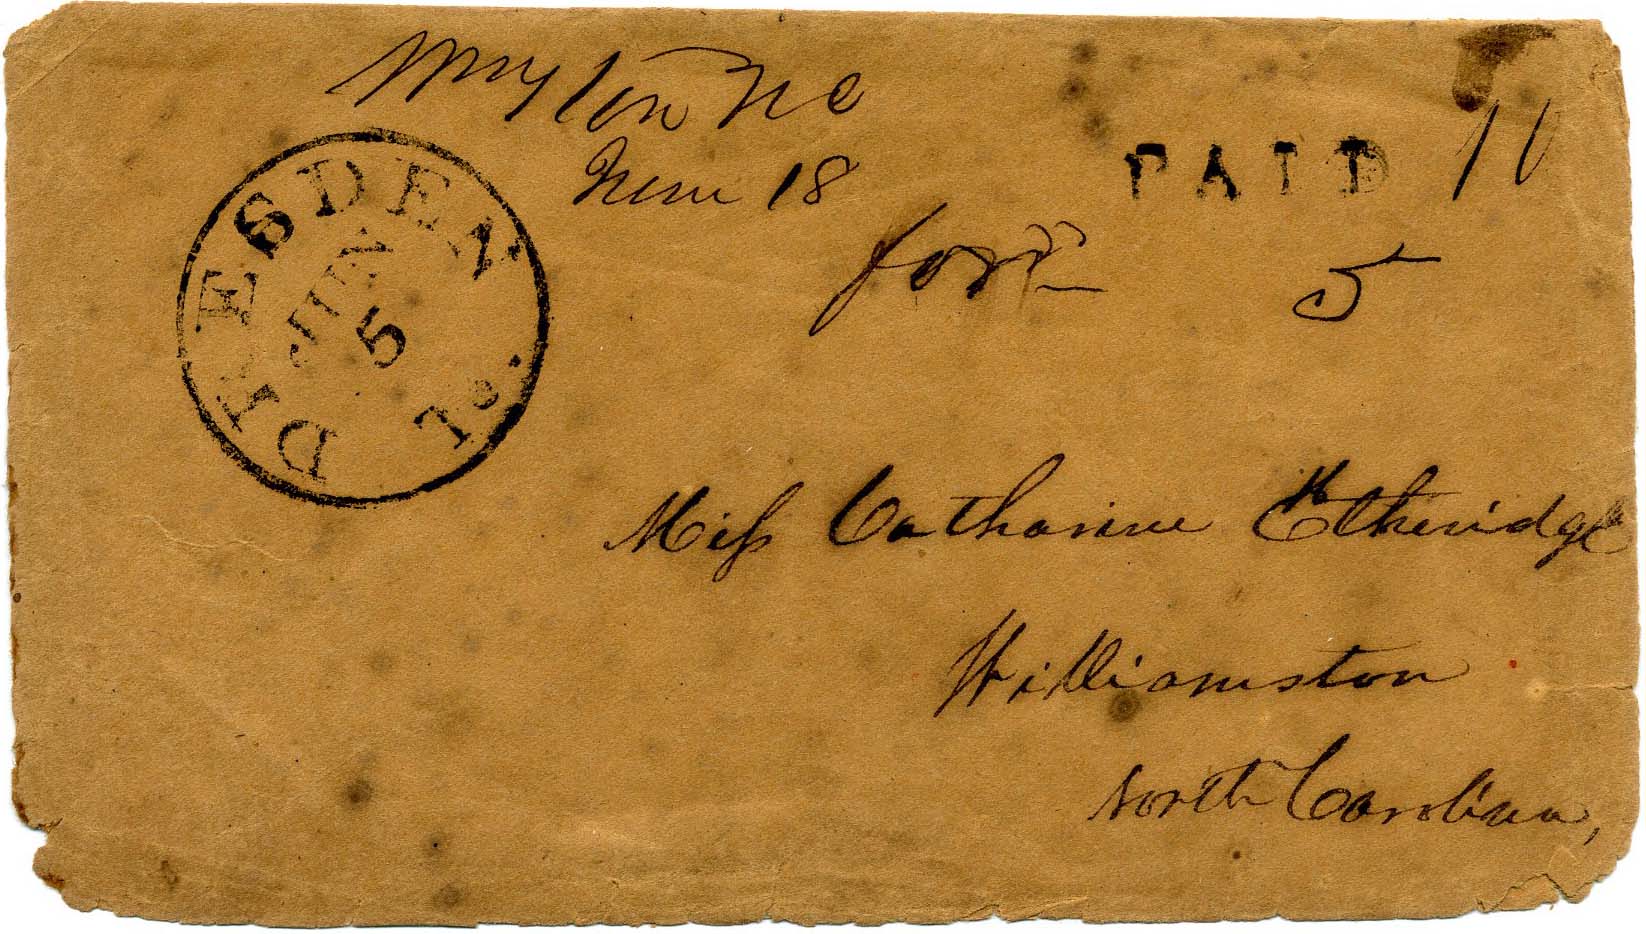 Wmston NC
June 18
PAID 10
forᵈ 5
DRESDEN Te.
JUN
5
Miss Catharine Etheridge
Williamston
North Carolina,